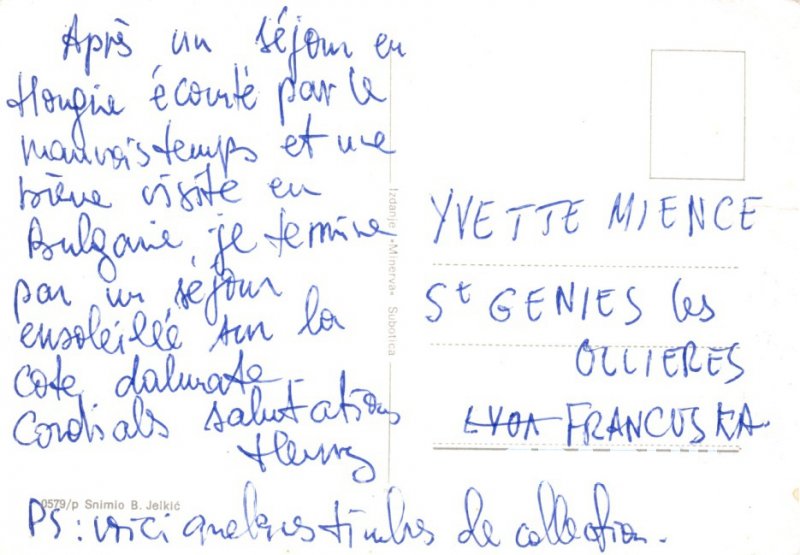 Après un séjour en
Hongrie écourté par le
mauvais temps et une
brève visite en
Bulgarie, je termine
par un séjour
ensoleillé sur la
côte dalmate
Cordiales salutations
Henry
PS : voici quelques timbres de collection.
YVETTE MIENCE
St GENIES les
OLLIERES
LYON FRANCUSKA
Izdanje »Minerva« Subotica
0579/p Snimio B. Jelkić